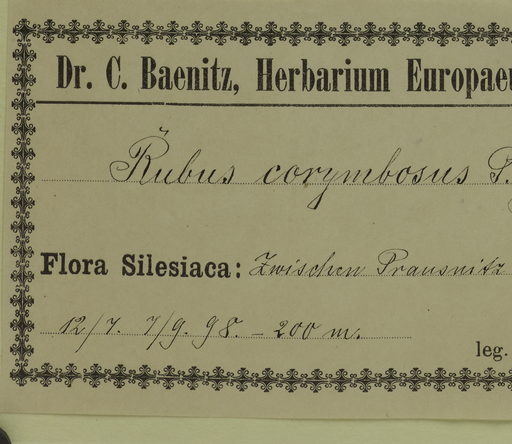 Dr. C. Baenitz, Herbarium Europaeu
Rubus corymbosus P.
Flora Silesiaca: Zwischen Prausnitz
12/7. 7/9. 98. – 200 m.
leg.